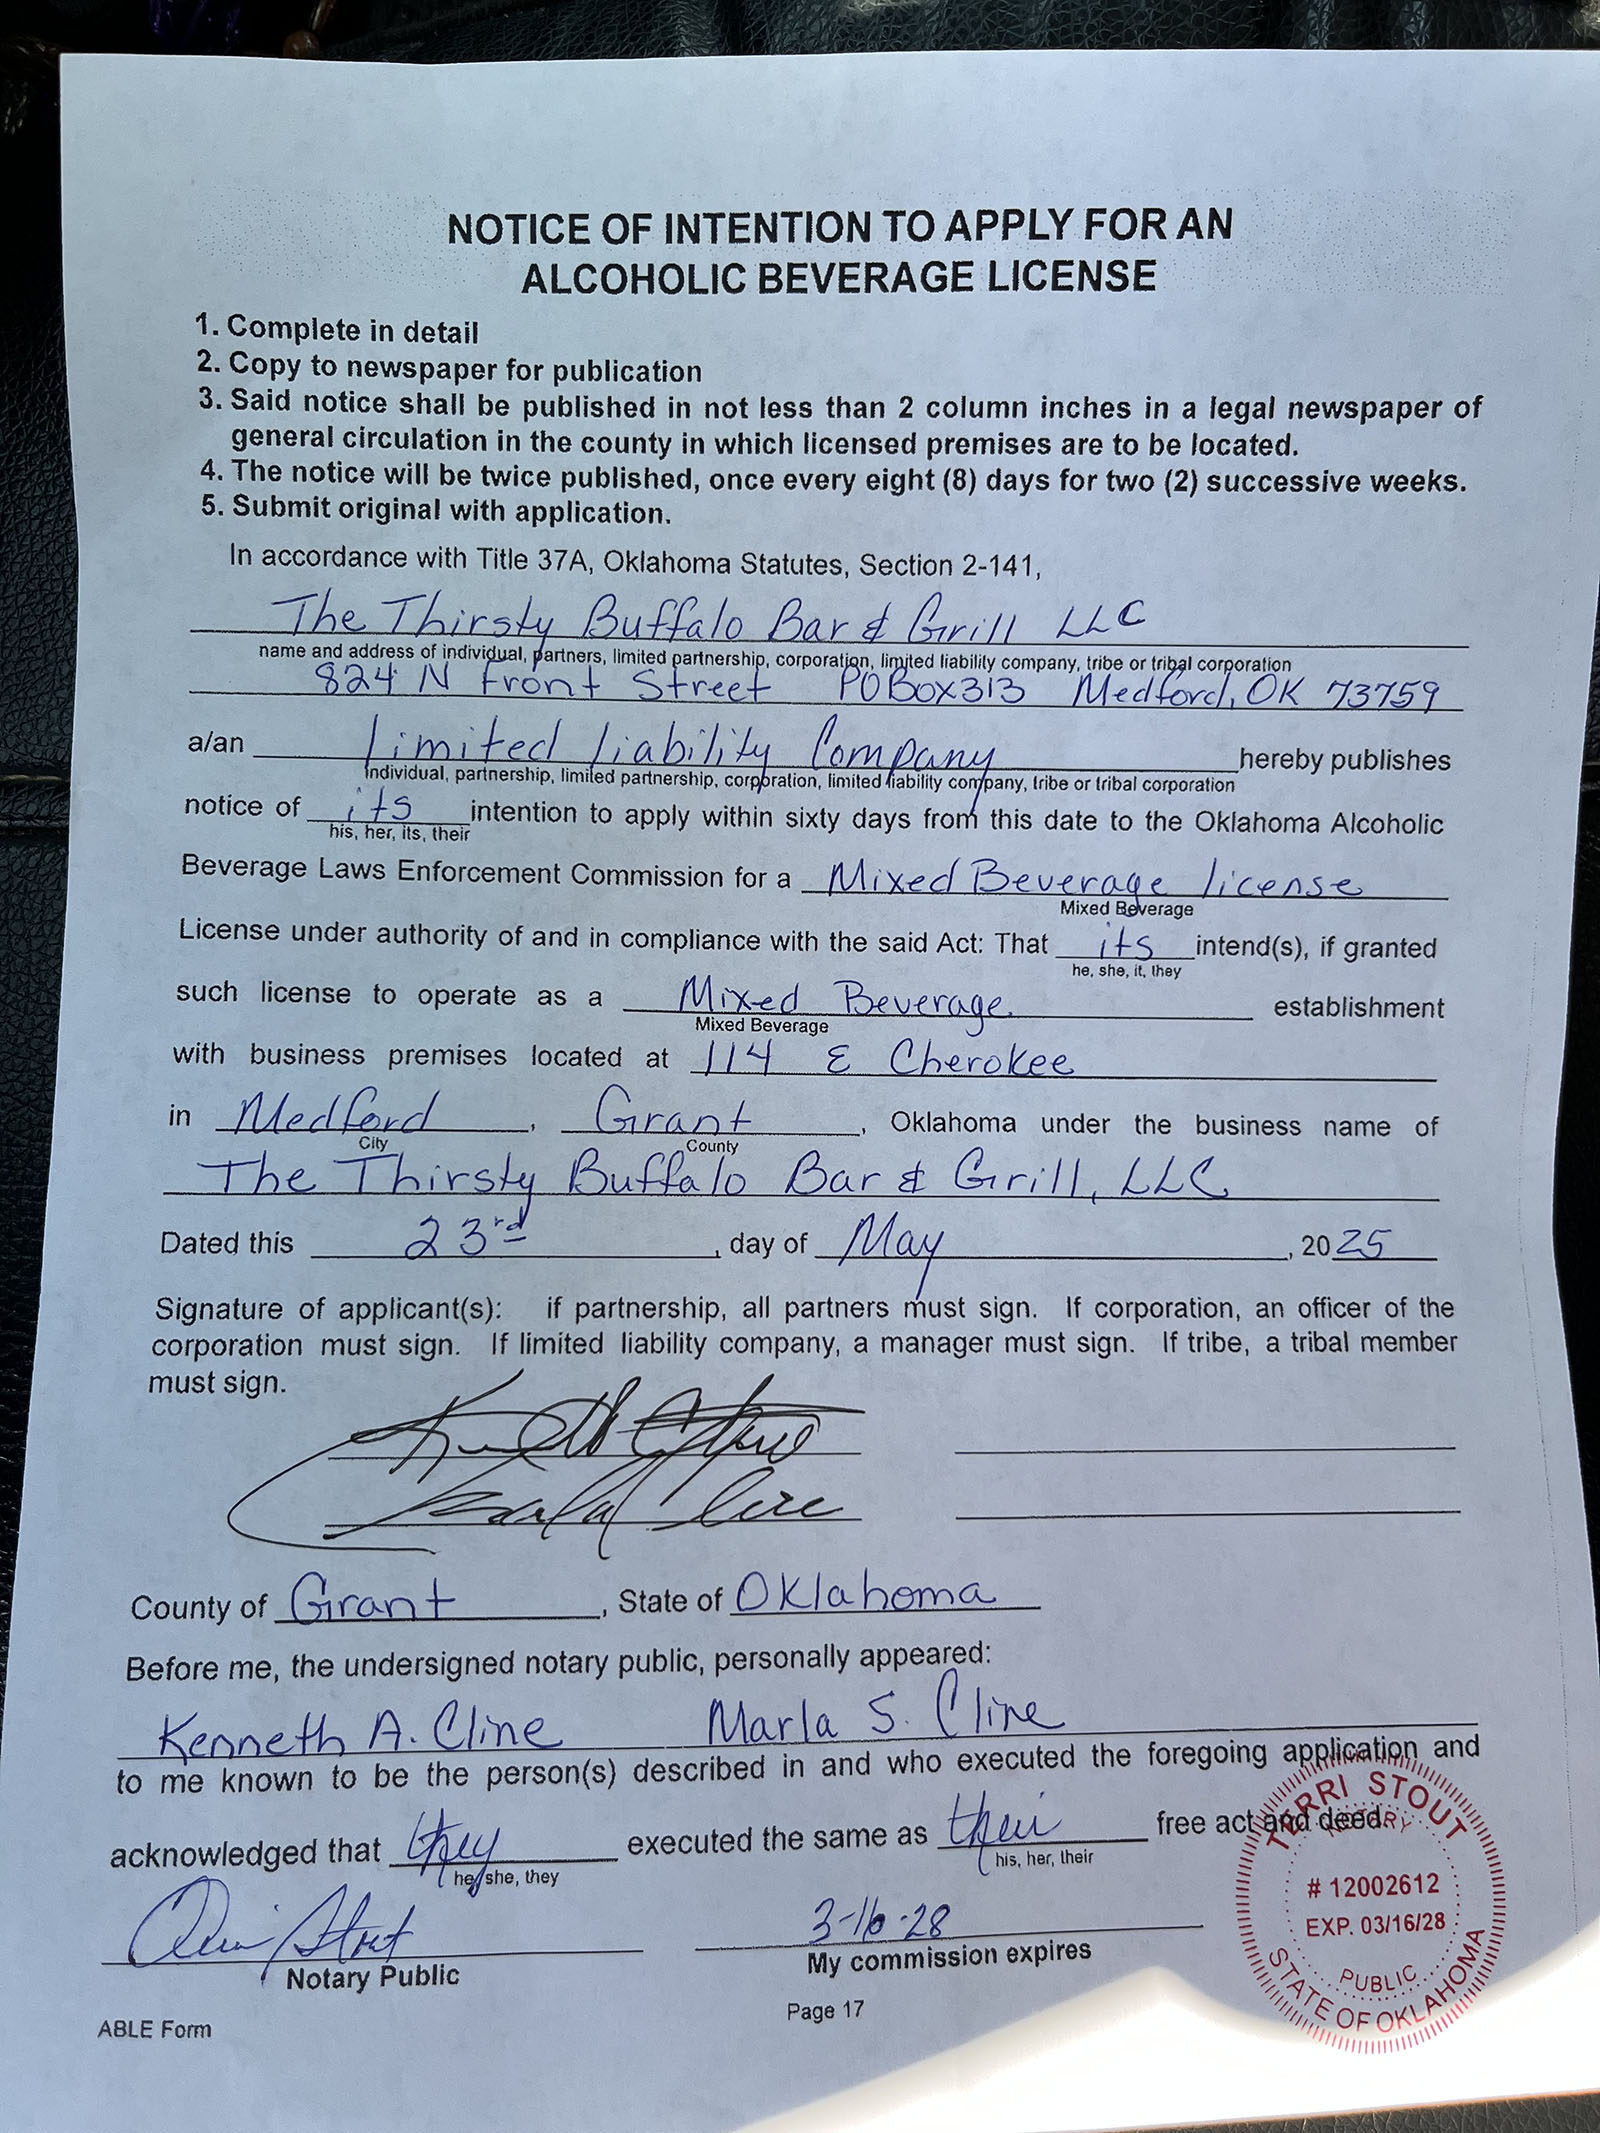 NOTICE OF INTENTION TO APPLY FOR AN
ALCOHOLIC BEVERAGE LICENSE
1. Complete in detail
2. Copy to newspaper for publication
3. Said notice shall be published in not less than 2 column inches in a legal newspaper of
general circulation in the county in which licensed premises are to be located.
4. The notice will be twice published, once every eight (8) days for two (2) successive weeks.
5. Submit original with application.
In accordance with Title 37A, Oklahoma Statutes, Section 2-141,
The Thirsty Buffalo Bar & Grill LLC
name and address of individual, partners, limited partnership, corporation, limited liability company, tribe or tribal corporation
824 N Front Street PO Box 313 Medford, OK 73759
a/an Limited liability Company hereby publishes
individual, partnership, limited partnership, corporation, limited liability company, tribe or tribal corporation
notice of its intention to apply within sixty days from this date to the Oklahoma Alcoholic
his, her, its, their
Beverage Laws Enforcement Commission for a Mixed Beverage license
Mixed Beverage
License under authority of and in compliance with the said Act: That its intend(s), if granted
he, she, it, they
such license to operate as a Mixed Beverage establishment
Mixed Beverage
with business premises located at 114 E Cherokee
in Medford, Grant, Oklahoma under the business name of
City County
The Thirsty Buffalo Bar & Grill, LLC
Dated this 23rd, day of May, 2025
Signature of applicant(s): if partnership, all partners must sign. If corporation, an officer of the
corporation must sign. If limited liability company, a manager must sign. If tribe, a tribal member
must sign.
Kenneth A Cline
Marla Cline
County of Grant, State of Oklahoma
Before me, the undersigned notary public, personally appeared:
Kenneth A. Cline Marla S. Cline
to me known to be the person(s) described in and who executed the foregoing application and
acknowledged that they executed the same as their free act and deed.
he, she, they his, her, their
Terri Stout 3-16-28
Notary Public My commission expires
TERRI STOUT
NOTARY
# 12002612
EXP. 03/16/28
PUBLIC
STATE OF OKLAHOMA
Page 17
ABLE Form